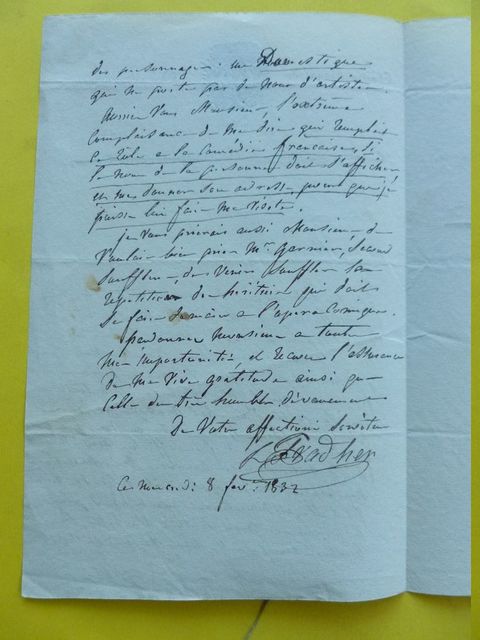 des personnages: un Domestique
qui ne porte pas de nom d'artiste.
Vous Monsieur, l'extrême
Complaisance de me dire qui remplit
ce rôle a la comédie française, si
le nom de la personne doit s'afficher
et me donner son adresse, pour que je
puisse lui faire ma visite.
je vous prierais aussi Monsieur de
Vouloir bien prier Mr. Garnier, second
souffleur, de Venir souffler la
répétition de qui doit
se faire a l'opera Comique.
pardonnez Monsieur a toute
Mon importunité, et recevez l'assurance
De Ma Vive gratitude ainsi que
Celle du très humble dévouement
De Votre affectionné Serviteur
Pradher
Ce mercredi 8 fev. 1832